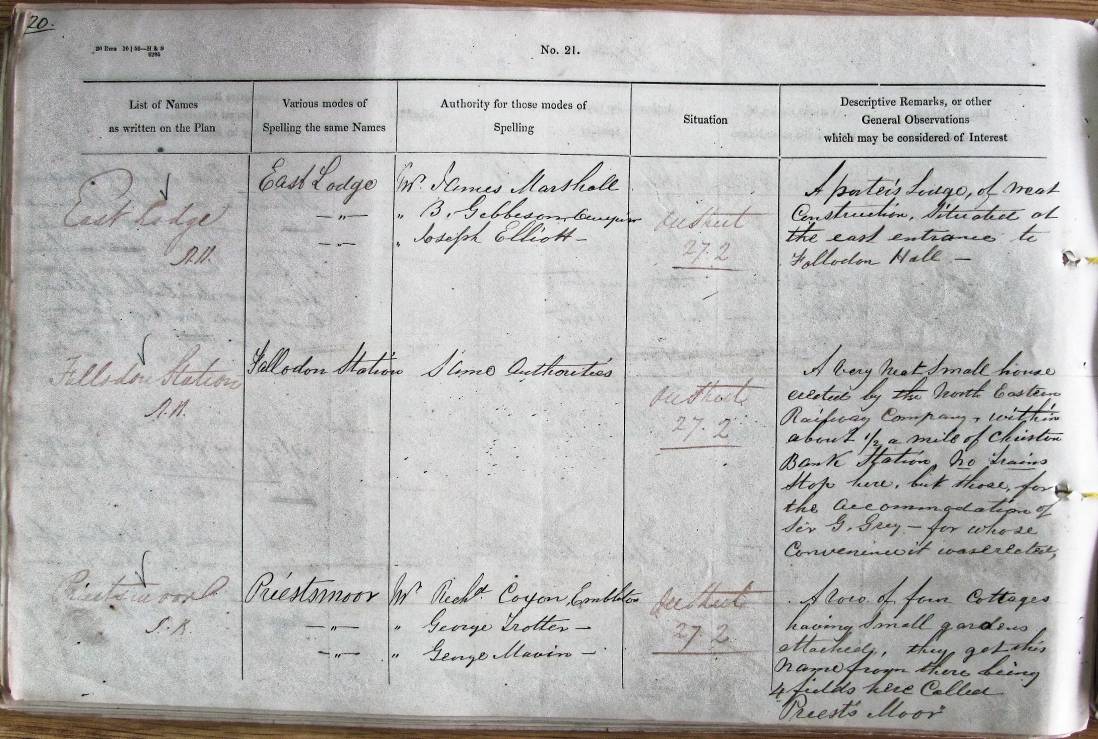 20.
20 Rms 10 | 58—H & S
6295
No. 21.
List of Names
as written on the Plan
Various modes of
Spelling the same Names
Authority for those modes of
Spelling
Situation
Descriptive Remarks, or other
General Observations
which may be considered of Interest
East Lodge
East Lodge
— „ —
— „ —
Mr. James Marshall
„ B.
„ Joseph Elliott —
On Sheet
27.2
A porter's Lodge, of neat
Construction, Situated at
the east entrance to
Fallodon Hall —
Fallodon Station
Fallodon Station
Same Authorities
On Sheet
27.2
A Very Neat Small house
erected by the North Eastern
Railway Company, within
about 1/2 a mile of Christon
Bank Station, No trains
Stop here, but those, for
the accommodation of
Sir G. Grey — for whose
Convenience it was erected,
Priestsmoor
Priestsmoor
— „ —
— „ —
Mr. Richd. Coxon, Embleton
„ George Trotter —
„ George Mavin —
On Sheet
27.2
A row of four Cottages
having Small gardens
attached, they get this
Name from there being
4 fields here Called
Priest's Moor